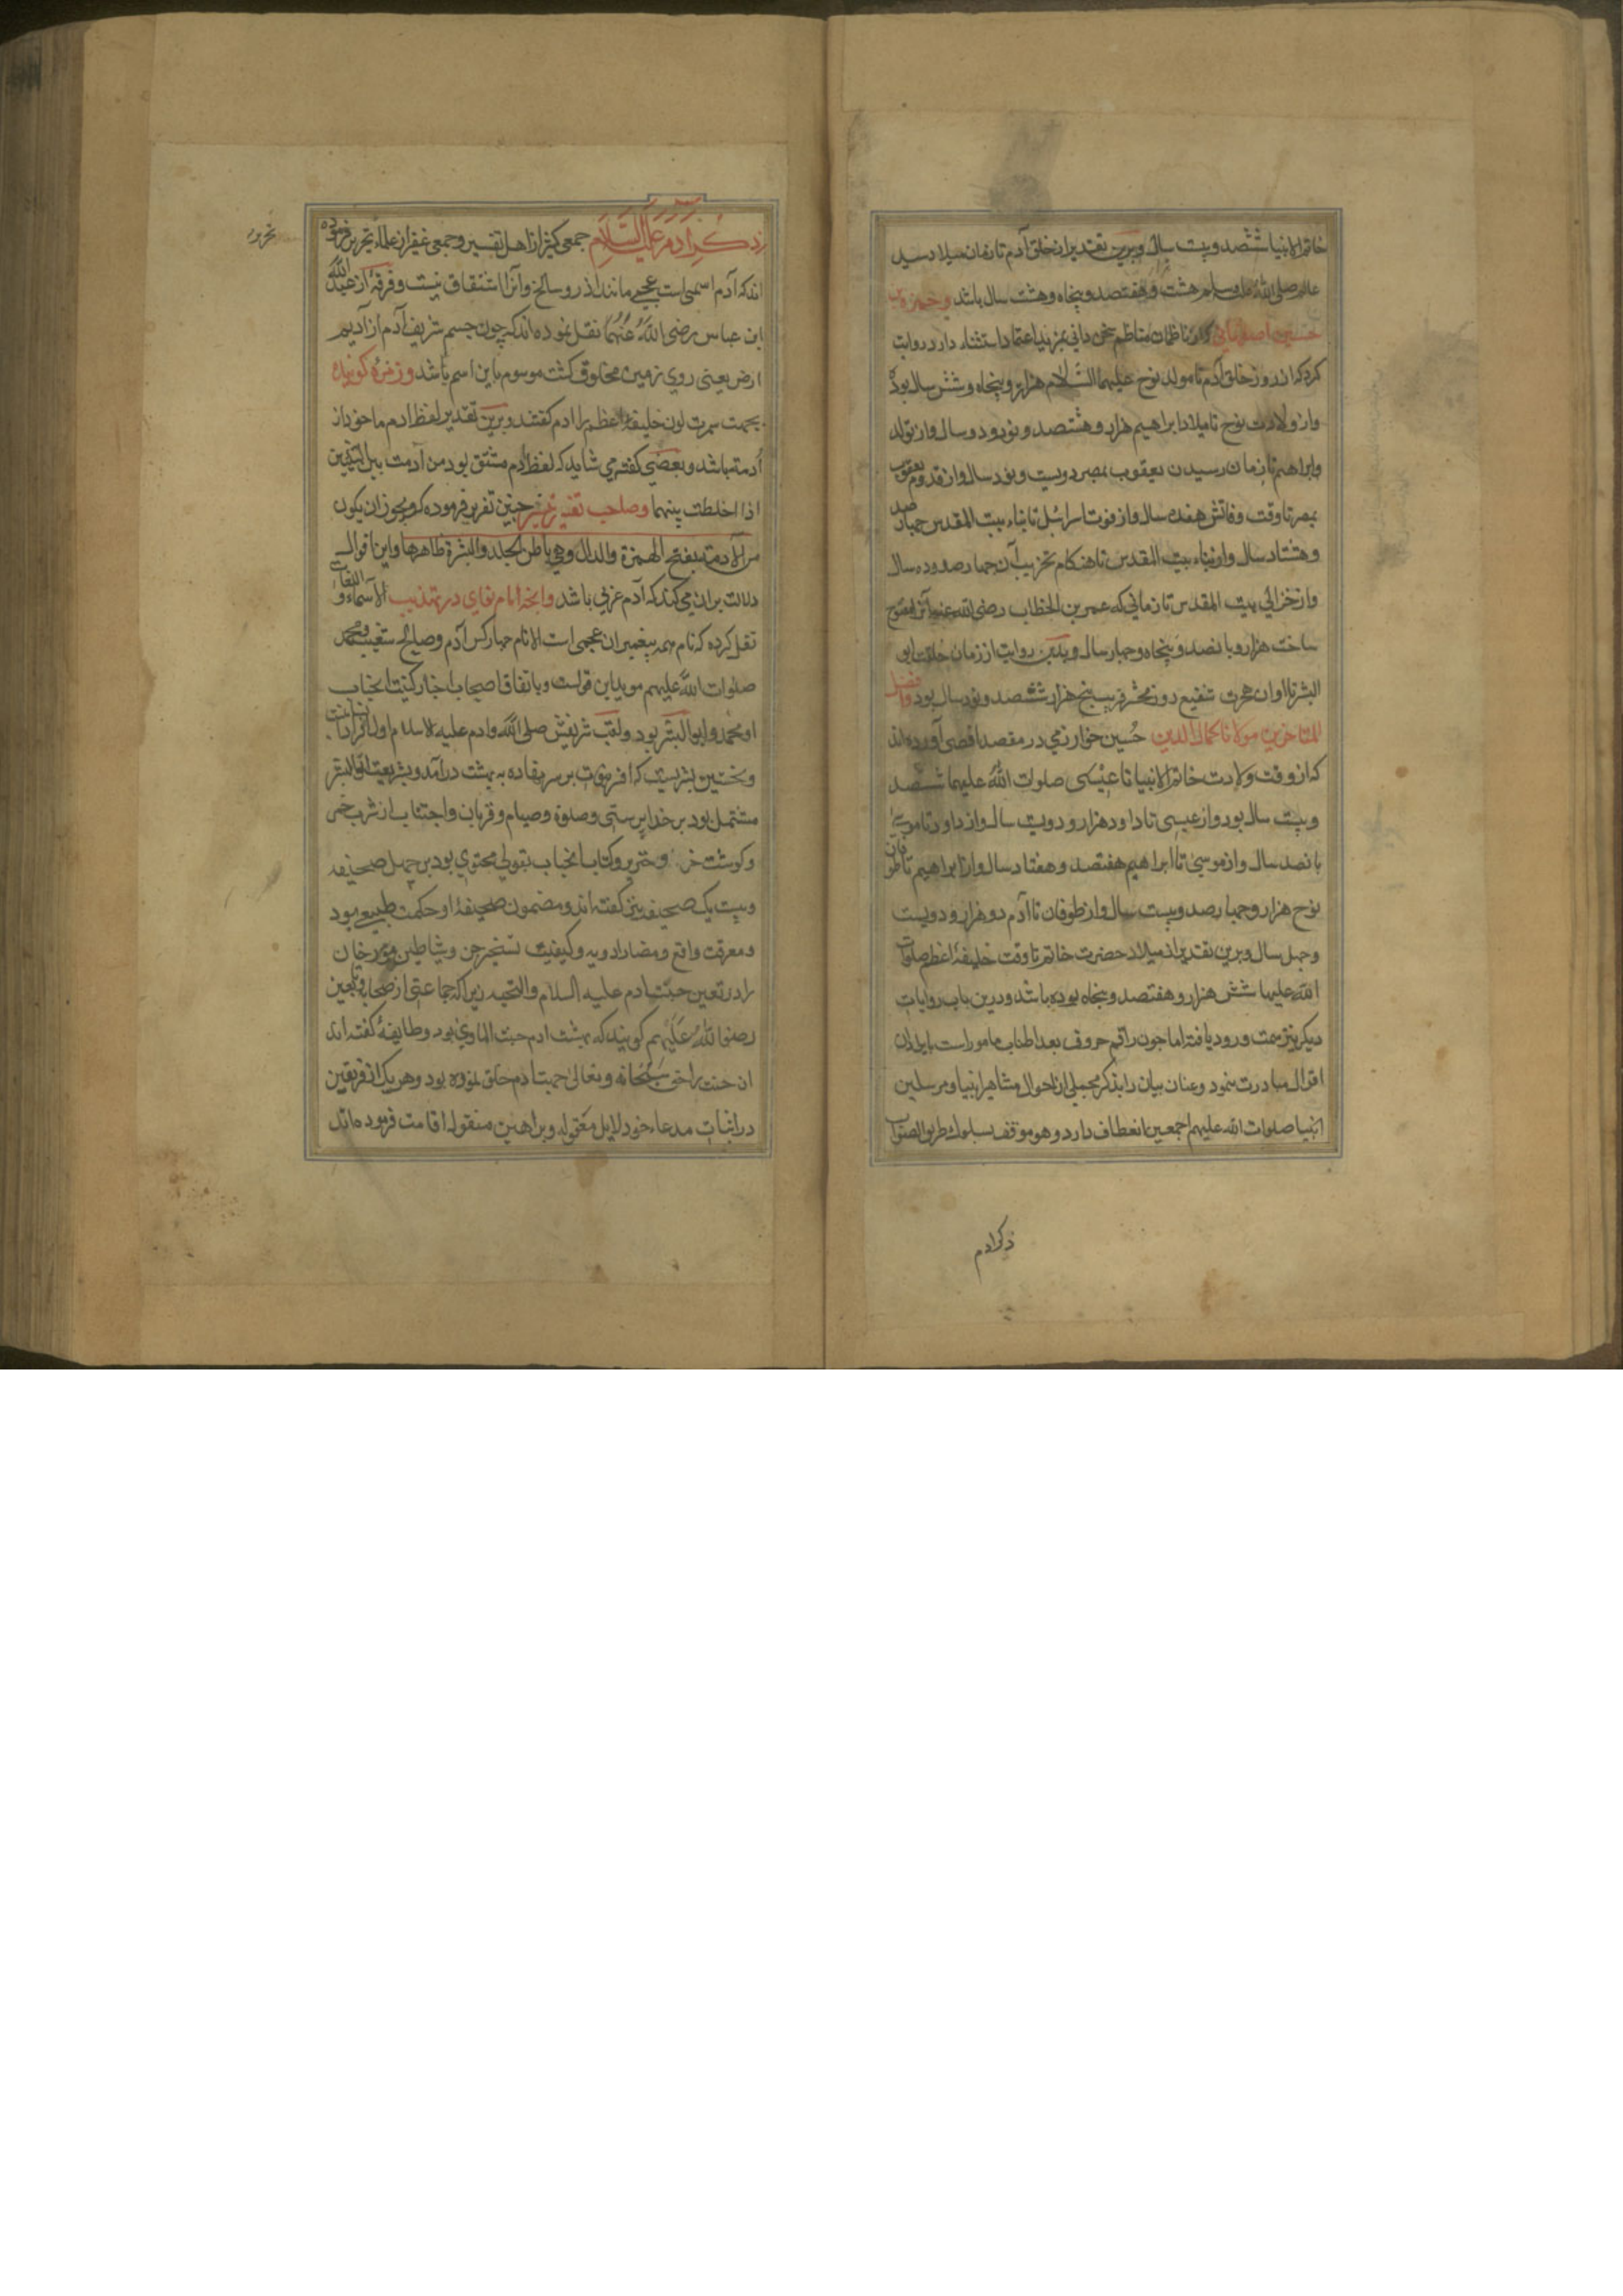 خاتم الانبیا ششصد و بیست سال و برین تقدیر از خلق آدم تا زمان میلاد سید
عالم صلی الله علیه وسلم هشت و هفتصد و پنجاه و هشت سال باشد و حمزه بن
حسین اصفهانی که از ناظمان مناظم سخن دانی بمزید اعتماد استثناء دارد روایت
کرده که از روز خلق آدم تا مولد نوح علیهما السلام هزار و پنجاه و شش سال بود
و از ولادت نوح تا میلاد ابراهیم هزار و هشتصد و نود و دو سال و از تولد
و ابراهیم تا زمان رسیدن یعقوب بمصر دویست و نود سال و از قدوم یعقوب
بمصر تا وقت وفاتش هفده سال و از فوت اسرائیل تا بناء بیت المقدس چهار صد
و هشتاد سال و از بناء بیت المقدس تا هنکام تخریب آن چهار صد و ده سال
و از خرابی بیت المقدس تا زمانی که عمر بن الخطاب رضی الله عنه آنرا مفتوح
ساخت هزار و پانصد و پنجاه و چهار سال و بدین روایت از زمان خلقت ابی
البشر تا اوان هجرت شفیع روز محشر قریب پنج هزار ششصد و نود سال بود و افضل
المتاخرین مولانا کمال الدین حسین خوارزمی در مقصد اقصی آورده اند
که از وقت ولادت خاتم الانبیا تا عیسی صلوات الله علیهما ششصد
و بیست سال بود و از عیسی تا داود هزار و دویست سال و از داود تا موسی
پانصد سال و از موسی تا ابراهیم هفتصد و هفتاد سال و از ابراهیم تا طوفان
نوح هزار و چهار صد و بیست سال و از طوفان تا آدم دو هزار و دویست
و چهل سال و برین تقدیر از میلاد حضرت خاتم تا وقت خلیفه اعظم صلوات
الله علیها شش هزار و هفتصد و پنجاه بوده باشد و درین باب روایات
دیکر نیز سمت ورود یافته اما چون راقم حروف بعد اطناب مامور است بایراد این
اقوال مبادرت ننمود و عنان بیان را بذکر مجملی از احوال مشاهیر انبیا و مرسلین
انبیا صلوات الله علیهم اجمعین انعطاف دارد و هو موفق بسلوک طریق الصواب
ذکر ادم
ذکر آدم علیه السلام جمعی کثیر از اهل تفسیر و جمعی غفیر از علماء تحریر فرموده
تحریر
اند که آدم اسمی است عجمی مانند آذر و سالخ و آنرا اشتقاق نیست و فرقه از عبد الله
ابن عباس رضی الله عنهما نقل نموده اند که چون جسم شریف آدم از ادیم
ارض یعنی روی زمین مخلوق کشت موسوم باین اسم باشد و زمره کویند که
بجهت سمرت لون خلیفه اعظم را ادم کفتند و برین تقدیر لفظ ادم ماخوذ از
أدمة باشد و بعضی کفته می شاید که لفظ آدم مشتق بود من آدمت بین الشیئین
اذا اخلطت بینهما و صاحب تفسیر چنین تقریر فرموده که و یجوز ان یکون
من الآدمة بفتح الهمزة والدال وهی باطن الجلد والبشرة ظاهرها و این اقوال
دلالت بران می کند که آدم عربی باشد و ایضا امام نواوی در تهذیب الاسماء و اللغات
نقل کرده که نام همه پیغمبران عجمی است الا نام چهار کس آدم و صالح و شعیب و محمد
صلوات الله علیهم موید این قولست و باتفاق اصحاب اخبار کنیت انجناب
ابو محمد و ابو البشر بود و لقب شریفش صفی الله و ادم علیه السلام اول افراد انسانست
و نخستین بشریست که افسر نبوت بر سر نهاده به بهشت درآمد و شریعت ابو البشر
مشتمل بود بر خدا پرستی و صلوة و صیام و قربان و اجتناب از شرب خمر
و کوشت خر و خنزیر و کتاب انجناب بقولی محتوی بود بر چهل صحیفه
و بیست یک صحیفه نیز کفته اند و مضمون صحیفه او حکمت طبیعی بود
و معرفت منافع و مضار ادویه و کیفیت تسخیر جن و شیاطین و مورخان
را در تعین جنت ادم علیه السلام والتحیه زیرا که جماعتی از صحابه و تابعین
رضوا الله علیهم کویند که بهشت ادم جنت الماوی بود و طایفه کفته اند
ان جنت را حق سبحانه و تعالی جهت ادم خلق نموده بود و هر یک از فریقین
در اثبات مدعاء خود دلایل معقوله و براهین منقوله اقامت فرموده اند